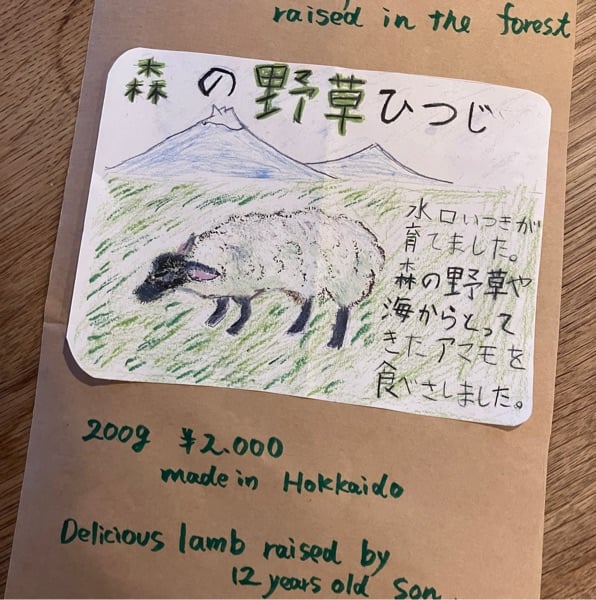 raised in the forest
森の野草ひつじ
水口いつきが
育てました。
森の野草や
海からとって
きたアマモを
食べさしました。
200g ¥2.000
made in Hokkaido
Delicious lamb raised by
12 years old son.